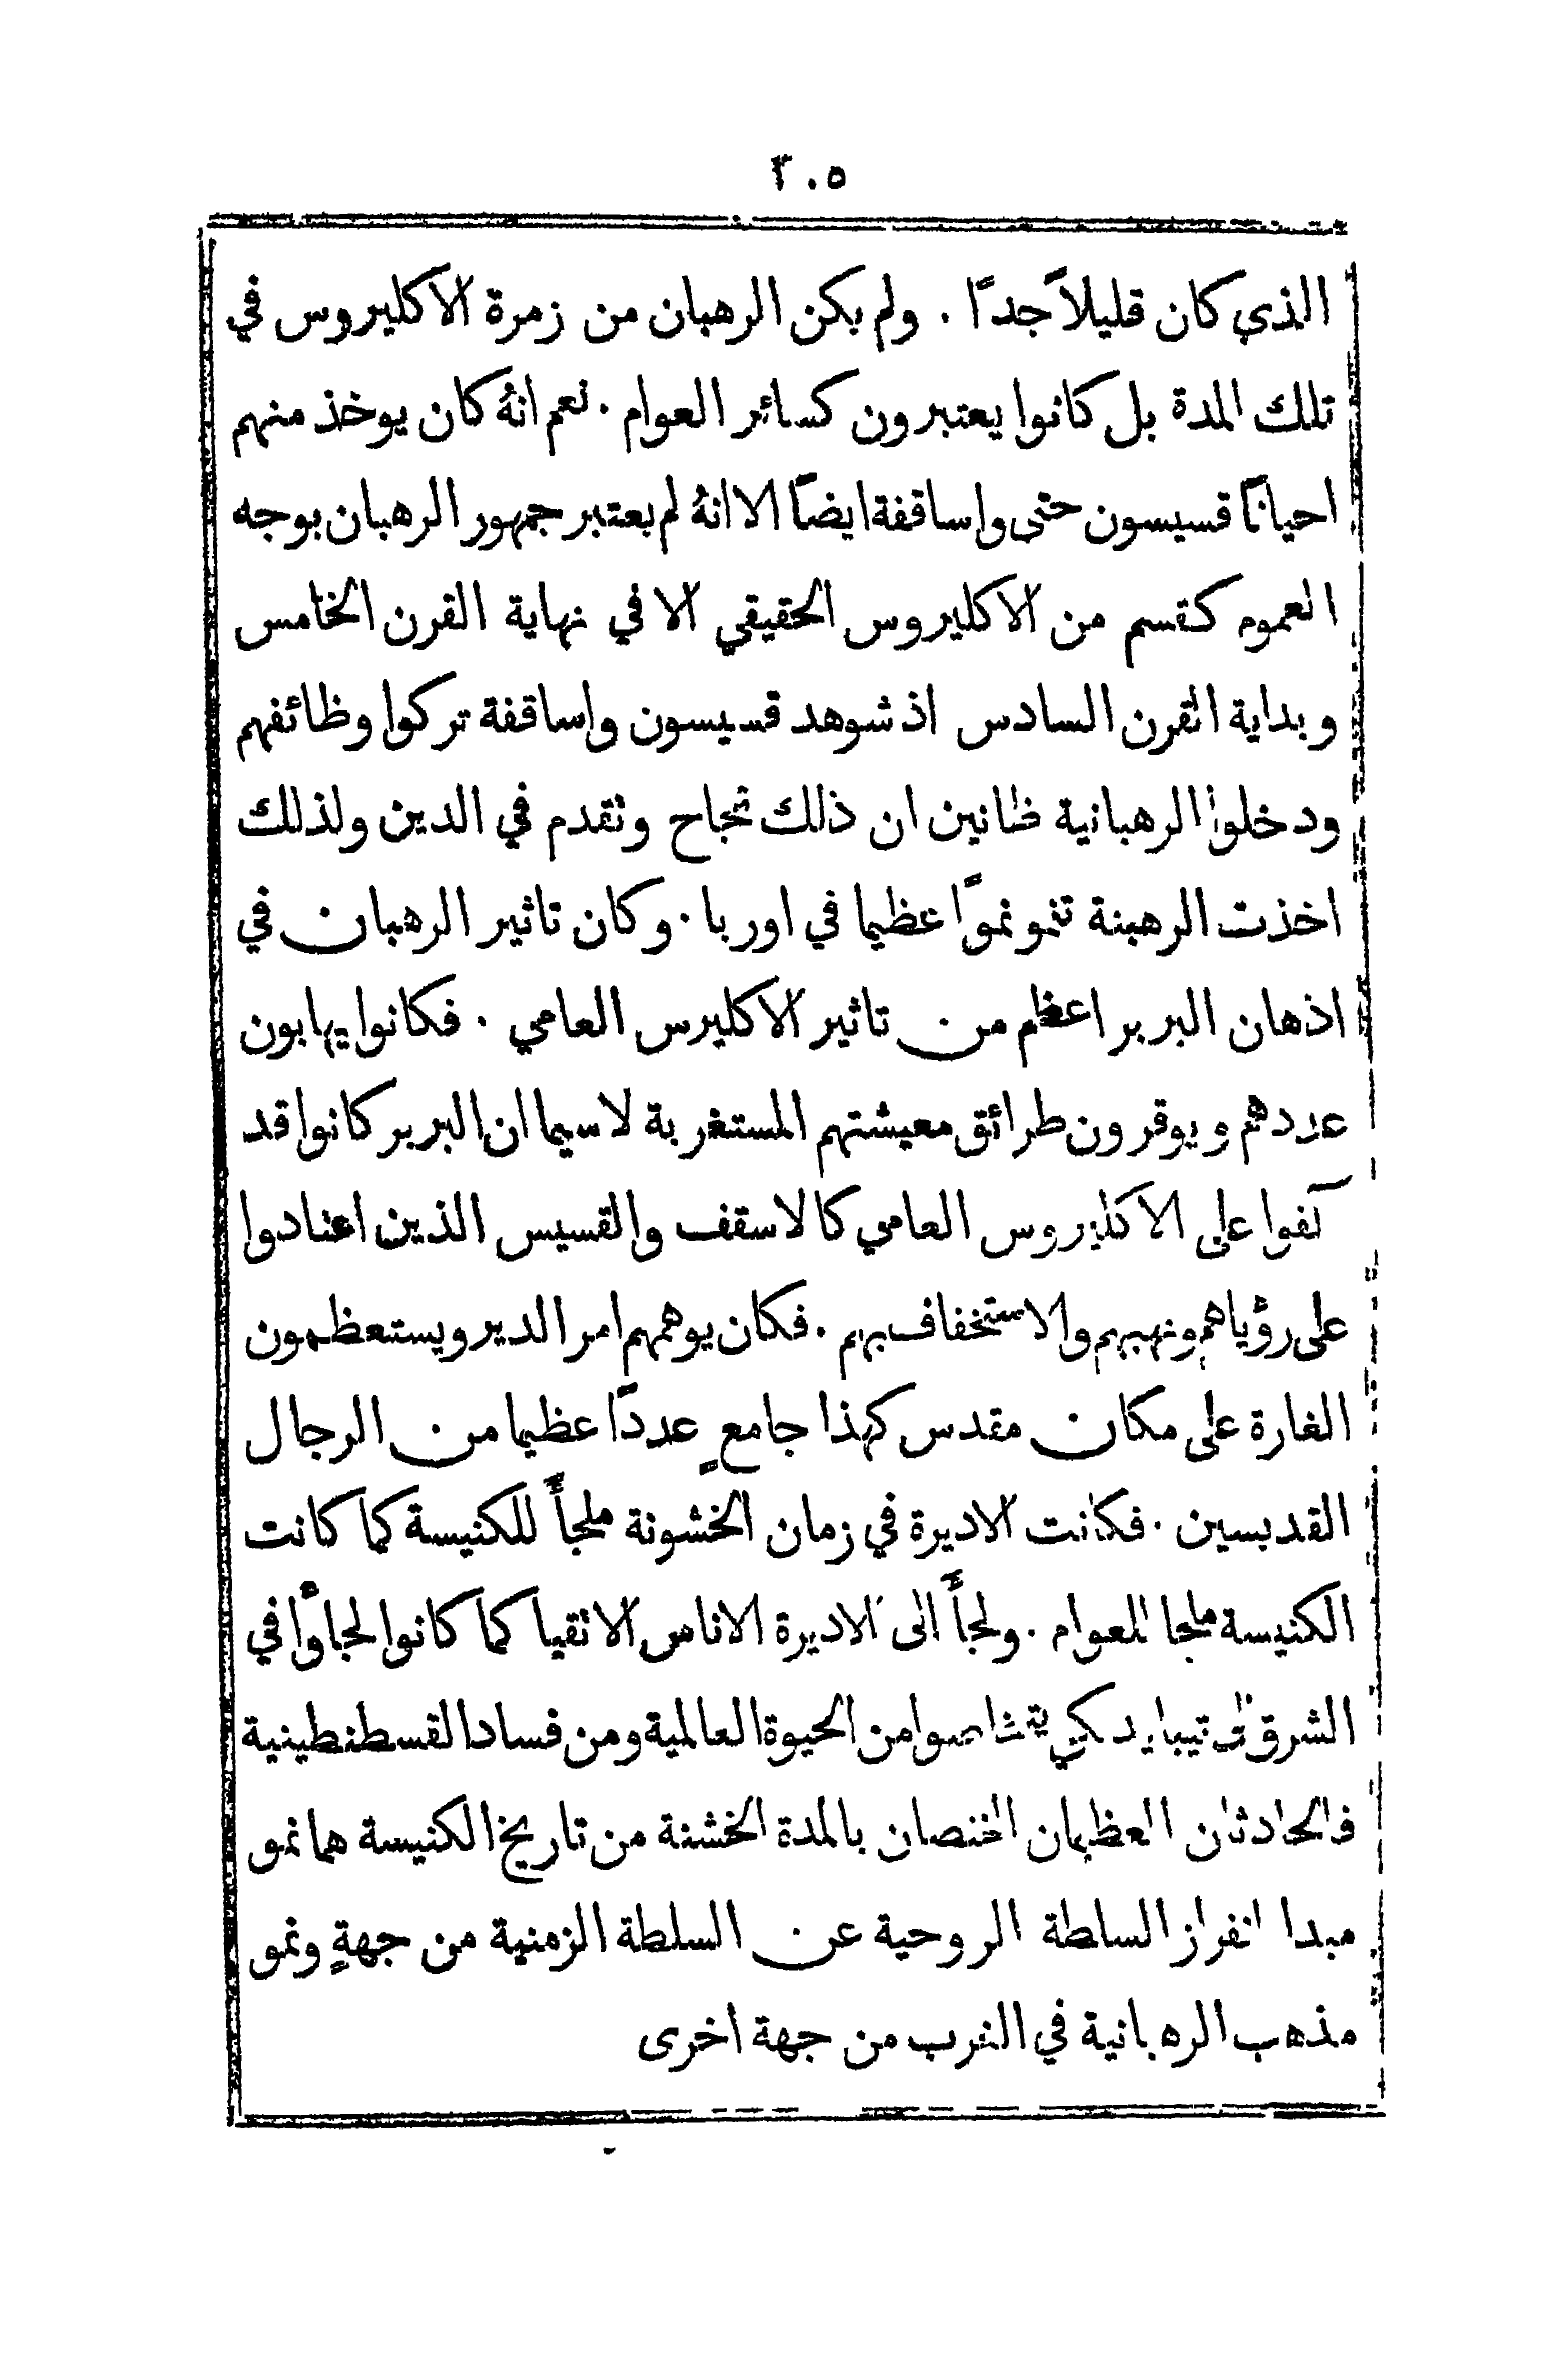 ٣٠٥
الذي كان قليلاً جدًا . ولم يكن الرهبان من زمرة الاكليروس في
تلك المدة بل كانوا يعتبرون كسائر العوام . نعم انهُ كان يوخذ منهم
احيانًا قسيسون حتى واساقفة ايضًا الا انهُ لم يعتبر جمهور الرهبان بوجه
العموم كقسم من الاكليروس الحقيقي الا في نهاية القرن الخامس
وبداية القرن السادس اذ شوهد قسيسون واساقفة تركوا وظائفهم
ودخلوا الرهبانية ظانين ان ذلك نجاح وتقدم في الدين ولذلك
اخذت الرهبنة تنمو نموًا عظيما في اوربا . وكان تاثير الرهبان في
اذهان البربر اعظم من تاثير الاكليرس العامي . فكانوا يهابون
عددهم ويوقرون طرائق معيشتهم المستغربة لاسيما ان البربر كانوا قد
آلفوا على الاكليروس العامي كالاسقف والقسيس الذين اعتادوا
على رؤياهم ونهبهم والاستخفاف بهم . فكان يوهمهم امر الدير ويستعظمون
الغارة على مكان مقدس كهذا جامعٍ عددًا عظيما من الرجال
القديسين . فكانت الاديرة في زمان الخشونة ملجأً للكنيسة كما كانت
الكنيسة ملجا للعوام . ولجأً الى الاديرة الاناس الاتقيا كما كانوا لجاؤا في
الشرق الى تيبايد لكي يتخلصوا من الحيوة العالمية ومن فساد القسطنطينية
فالحادثان العظيمان المختصان بالمدة الخشنة من تاريخ الكنيسة هما نمو
مبدا انفراز السلطة الروحية عن السلطة الزمنية من جهةٍ ونمو
مذهب الرهبانية في الغرب من جهة اخرى